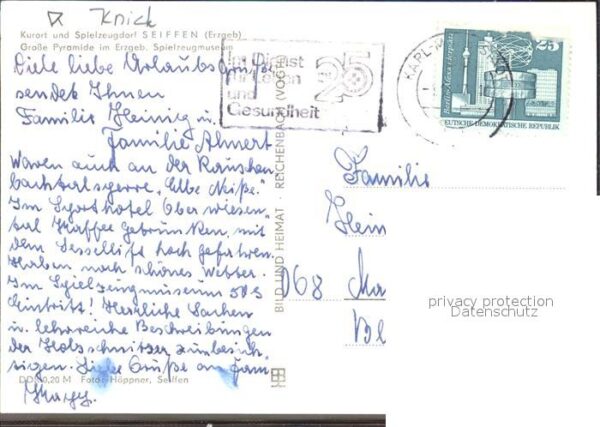 Knick
Kurort und Spielzeugdorf SEIFFEN (Erzgeb)
Große Pyramide im Erzgeb. Spielzeugmuseum
Viele liebe Urlaubsgrüße
sendet Ihnen
Familie Heinig u.
Familie Ahnert
Waren auch an der Rauschen
bachtalsperre,
Im Sporthotel Oberwiesen-
tal Kaffee getrunken, mit
dem Sessellift hoch gefahren.
Haben noch schönes Wetter.
Im Spielzeugmuseum
Eintritt! Herrliche Sachen
u. lehrreiche Beschreibungen
der Holzschnitzer zu besich-
tigen. Liebe Grüße an Fam
DDR 0,20 M Foto: Höppner, Seiffen
BILD UND HEIMAT · REICHENBACH (VOGTL)
Im Dienst
für Leben
und
Gesundheit
25
KARL-M
25
DEUTSCHE DEMOKRATISCHE REPUBLIK
Familie
Hein
D68 Ma
Bl
privacy protection
Datenschutz